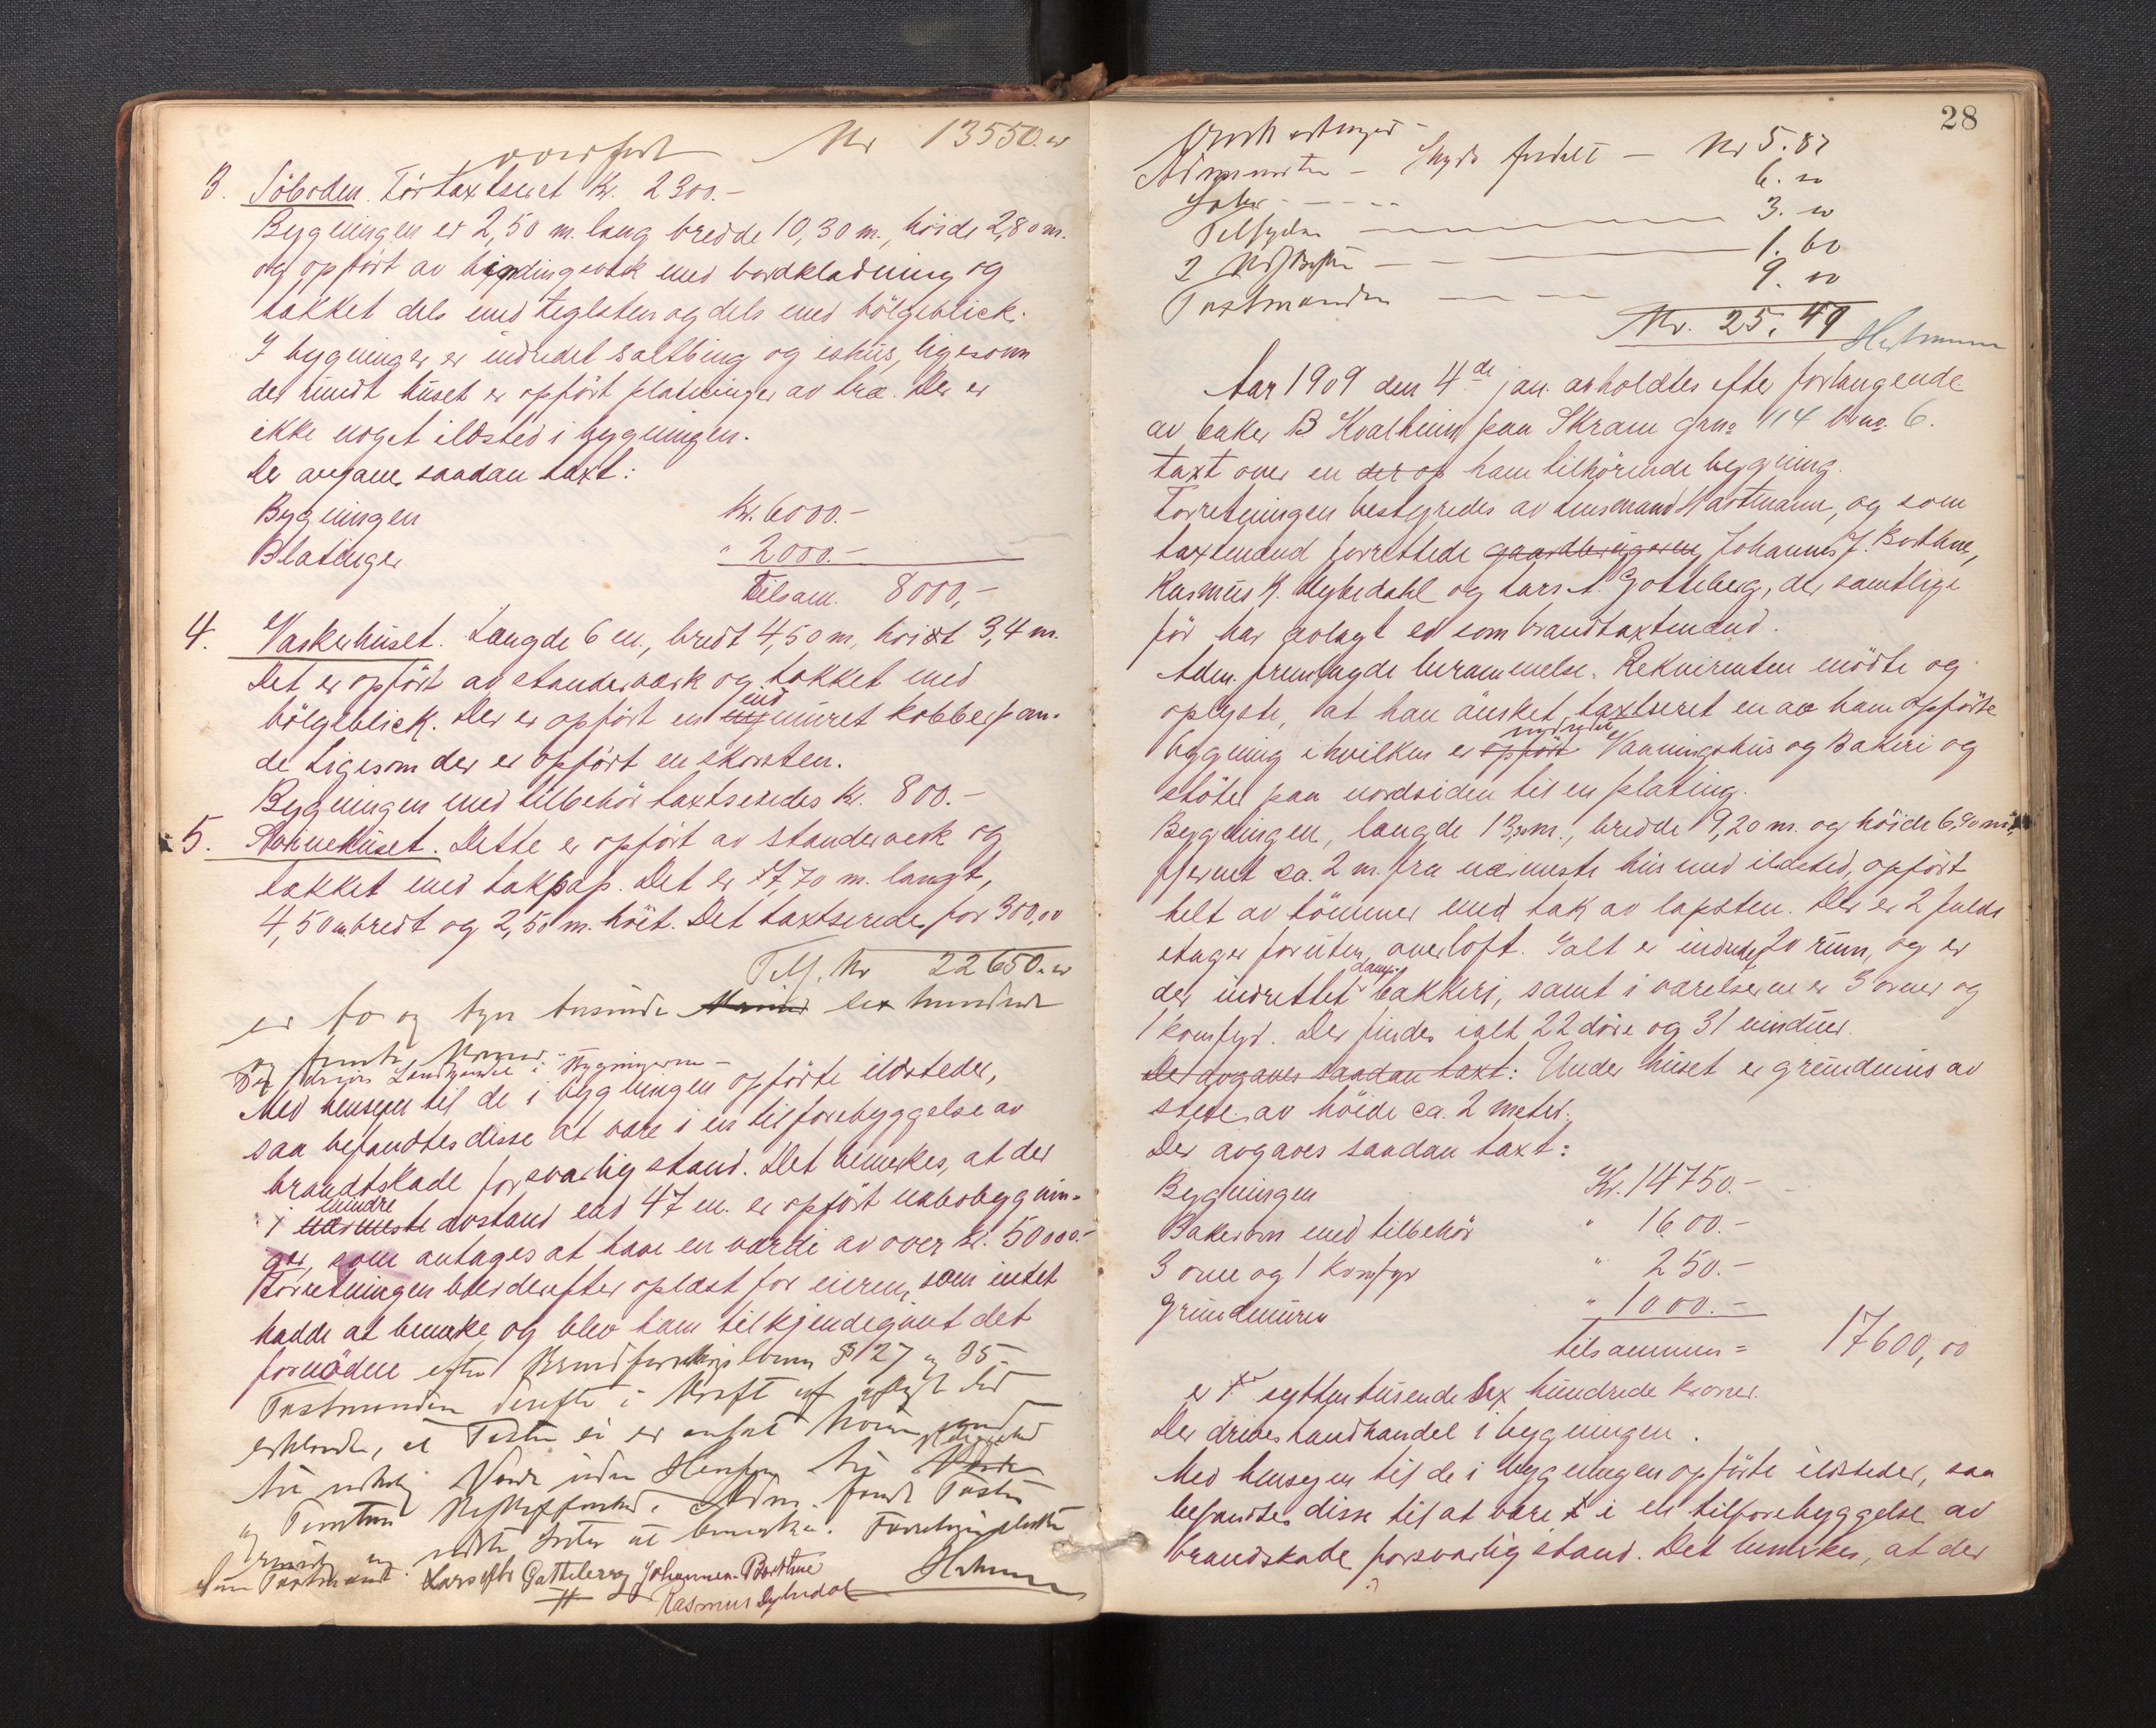 overført Kr 13550.00
3. Söboden. Før taxtseret Kr. 2300.-
Bygningen er 2,50 m. lang bredde 10,30 m., höide 2,80 m.
og opfört av bindingsverk med bordkladning og
takket dels med teglsten og dels med bölgeblick.
I bygningen er indredet saltbing og ishus, ligesom
der rundt huset er opfört platninger av træ. Der er
ikke noget ildsted i bygningen.
Der avgaves saadan taxt:
Bygningen Kr. 6000.-
Platinger " 2000.-
Tilsam. 8000,-
4. Vaskerhuset. Længde 6 m., bredt 4,50 m, höidt 3,4 m.
Det er opfört av standerværk og takket med
bölgeblick. Der er opfört en ind muret kobberpan-
de ligesom der er opfört en skorsten.
Bygningen med tilbehör taxtseredes Kr. 800.-
5. Svinehuset. Dette er opfört av standerverk og
takket med takpap. Det er 7,70 m. langt,
4,50 m. bredt og 2,50 m. höit. Det taxtseredes for 300,00
Tils. Kr 22650.00
er to og tyve tusinde sex hundrede
og femti Kroner.
Der drives Landhandel i Bygningerne -
Med hensyn til de i bygningen opförte ildsteder,
saa befandtes disse at være i en til forebyggelse av
brandtskade forsvarlig stand. Det bemerkes, at der
i mindre nærmeste avstand end 47 m. er opfört nabobygnin-
ger, som antages at have en værdi av over kr. 50000.-
Forretningen blev derefter oplæst for eieren, som intet
hadde at bemerke og blev ham tilkjendegivet det
fornödne efter Brandforsikringsloven § 27 og 35.
Taxtmændene derefter i Kraft af aflagt Ed
erklærede, at Taxten ei er ansat höiere end
til Værdi uden Hensyn til
og Tomtens Beskaffenhed. Adm. fandt Taxten
og intet at bemerke. Forretningen sluttet
som Taxtmænd. Lars Gotteberg Johannes Borthne Hartmann
Rasmus Dybedal
28
Skyds fordelt - Kr 5.87
6.00
3.00
1.60
Taxtmænden 9.00
Kr. 25.49 Hartmann
Aar 1909 den 4de jan. avholdtes efter forlangende
av baker B Hvalheim paa Skram grno 114 brno. 6.
taxt over en det op ham tilhörende bygning.
Forretningen bestyredes av lensmand Hartmann, og som
taxtmænd forrettede gaardbrugerne Johannes J. Borthne,
Rasmus K. Dybedahl og Lars A. Gotteberg, der samtlige
för har avlagt ed som brandtaxtmænd.
Adm. fremlagde berammelse. Rekvirenten mödte og
oplyste, at han önsket taxtseret en av ham opförte
bygning i hvilken er opfört indredet Vaaningshus og Bakeri og
stöter paa nordsiden til en plating.
Bygningen, længde 13,30 m., bredde 9,20 m. og höide 6,90 m.
fjernet ca. 2 m. fra nærmeste hus med ildsted, opfört
helt av tömmer med tak av lapsten. Der er 2 fulde
etager foruten overloft. Ialt er indredet 20 rum, og er
der indrettet damp- bakkeri, samt i værelserne er 3 ovner og
1 komfyr. Der findes ialt 22 döre og 31 vinduer.
Der avgaves saadan taxt: Under huset er grundmur av
sten av höide ca. 2 meter.
Der avgaves saadan taxt:
Bygningen Kr. 14750.-
Bakerovn med tilbehör " 1600.-
3 ovne og 1 komfyr " 250.-
Grundmuren " 1000.-
tilsammen = 17600,00
er sytten tusende sex hundrede kroner.
Der drives handhandel i bygningen.
Med hensyn til de i bygningen opförte ildsteder, saa
befandtes disse til at være i en til forebyggelse av
brandskade forsvarlig stand. Det bemerkes, at der